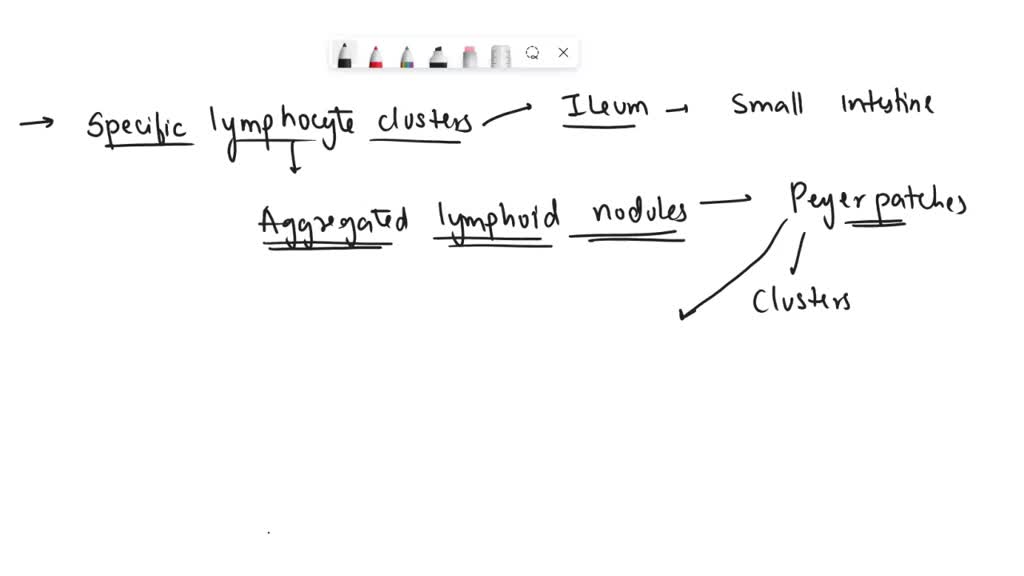 → Specific lymphocyte clusters → Ileum → Small Intestine
Aggregated lymphoid nodules → Peyer patches
Clusters